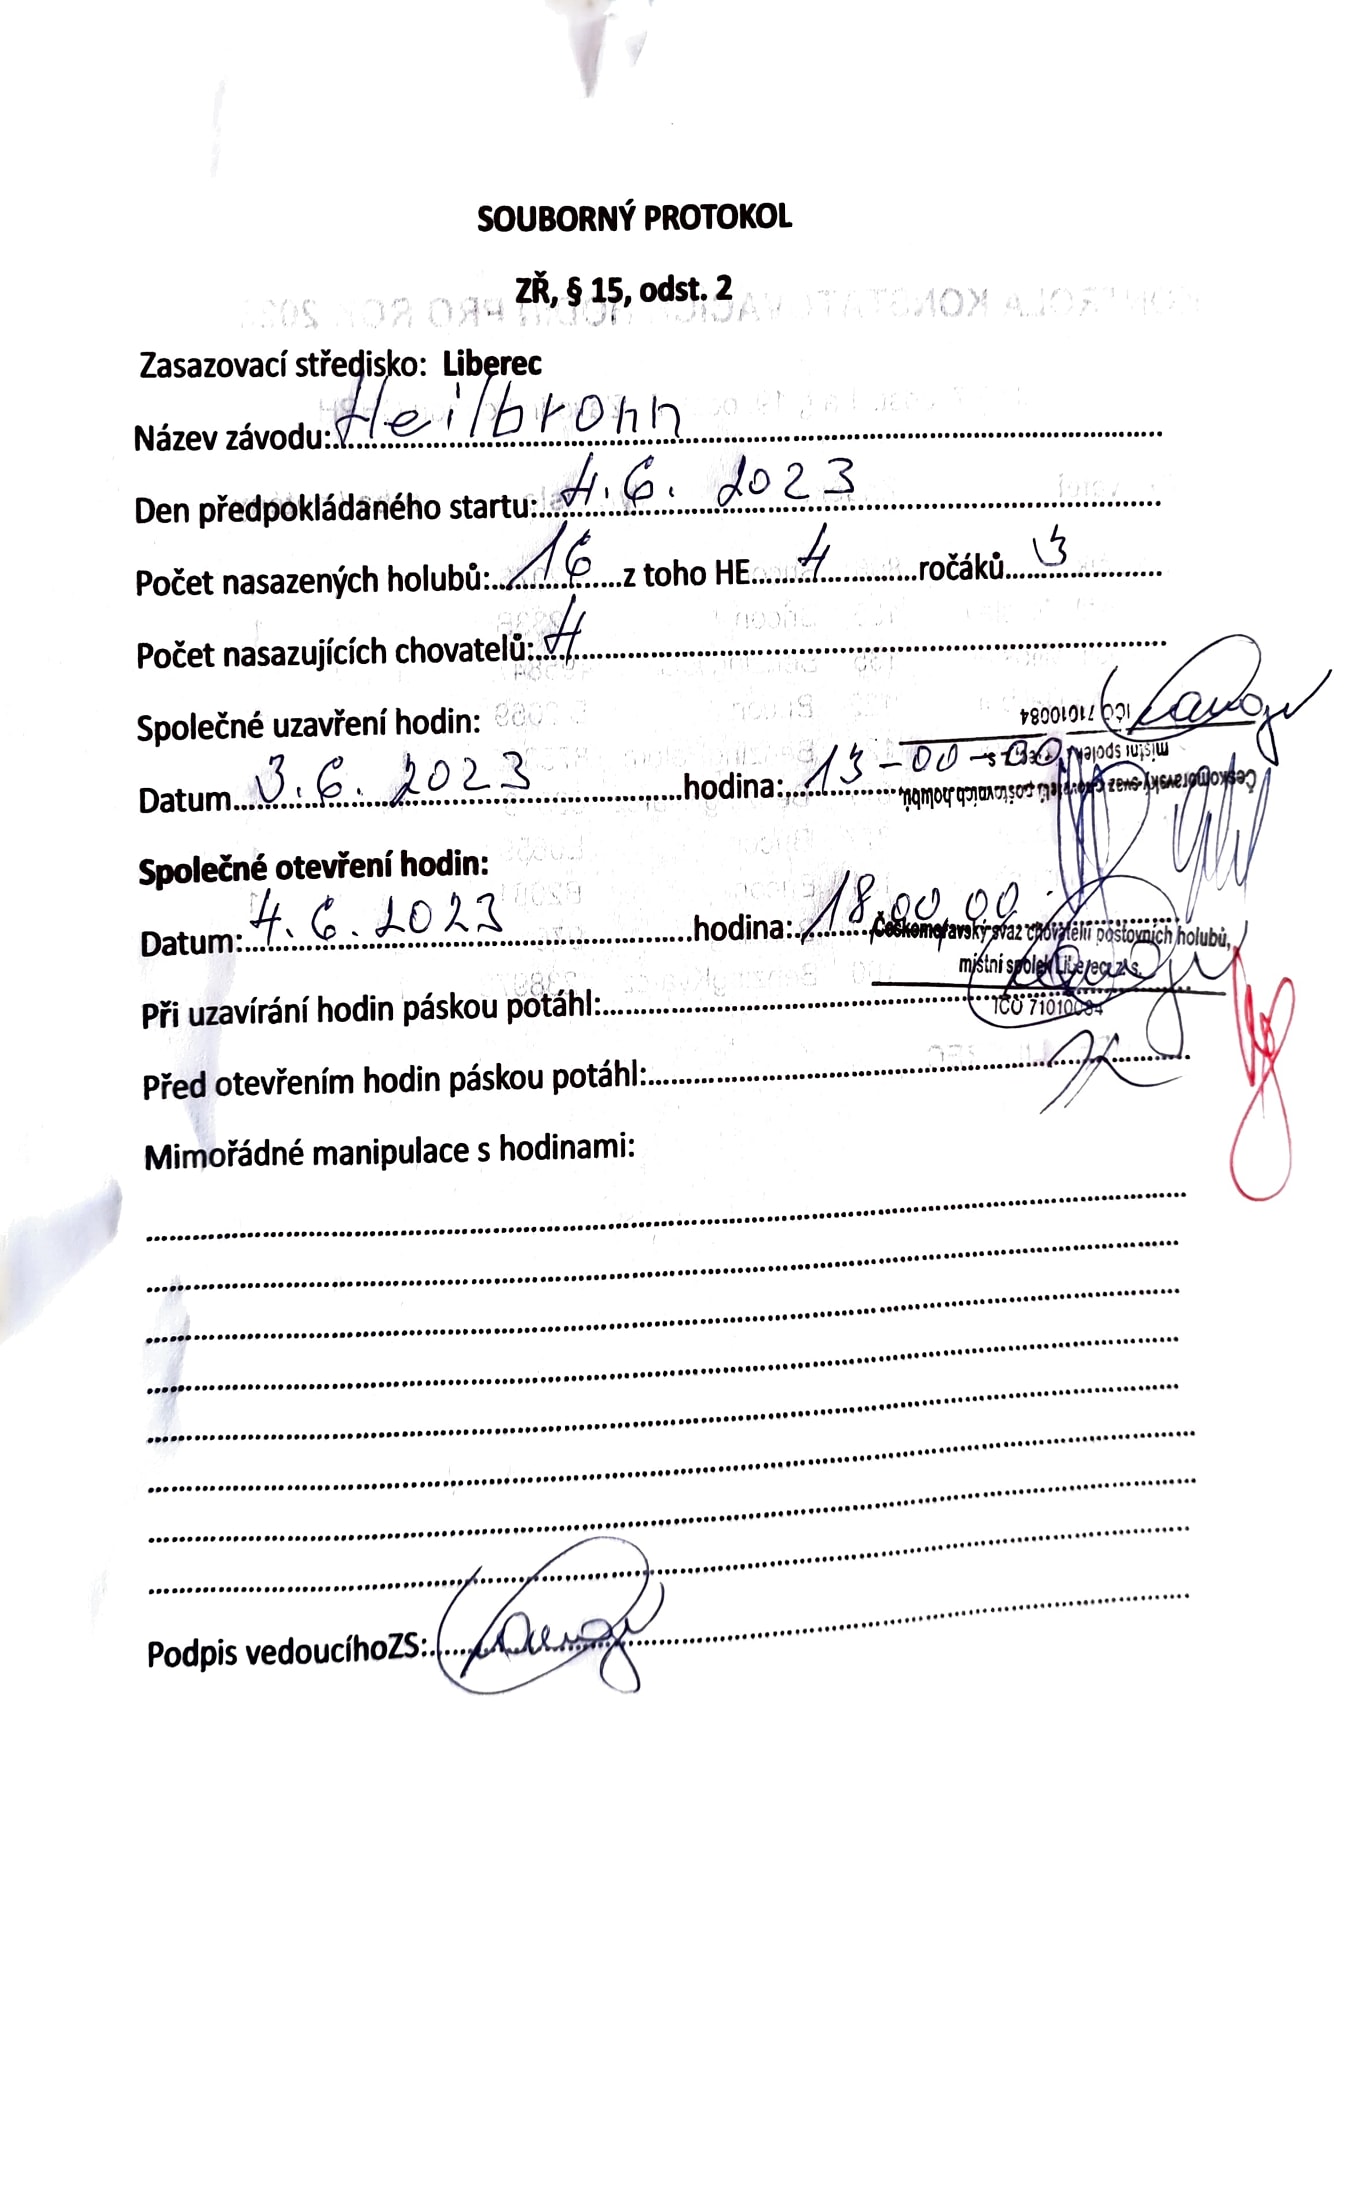 SOUBORNÝ PROTOKOL
ZŘ, § 15, odst. 2
Zasazovací středisko: Liberec
Název závodu: Heilbronn
Den předpokládaného startu: 4.6. 2023
Počet nasazených holubů: 16 z toho HE 4 ročáků 3
Počet nasazujících chovatelů: 4
Společné uzavření hodin:
IČO 71010084
místní spolek
Českomoravský svaz chovatelů poštovních holubů,
Datum 3.6. 2023 hodina: 13-00-00
Společné otevření hodin:
Datum: 4.6.2023 hodina: 18 00 00
Českomoravský svaz chovatelů poštovních holubů,
místní spolek Liberec z.s.
IČO 71010084
Při uzavírání hodin páskou potáhl:
Před otevřením hodin páskou potáhl:
Mimořádné manipulace s hodinami:
Podpis vedoucíhoZS: